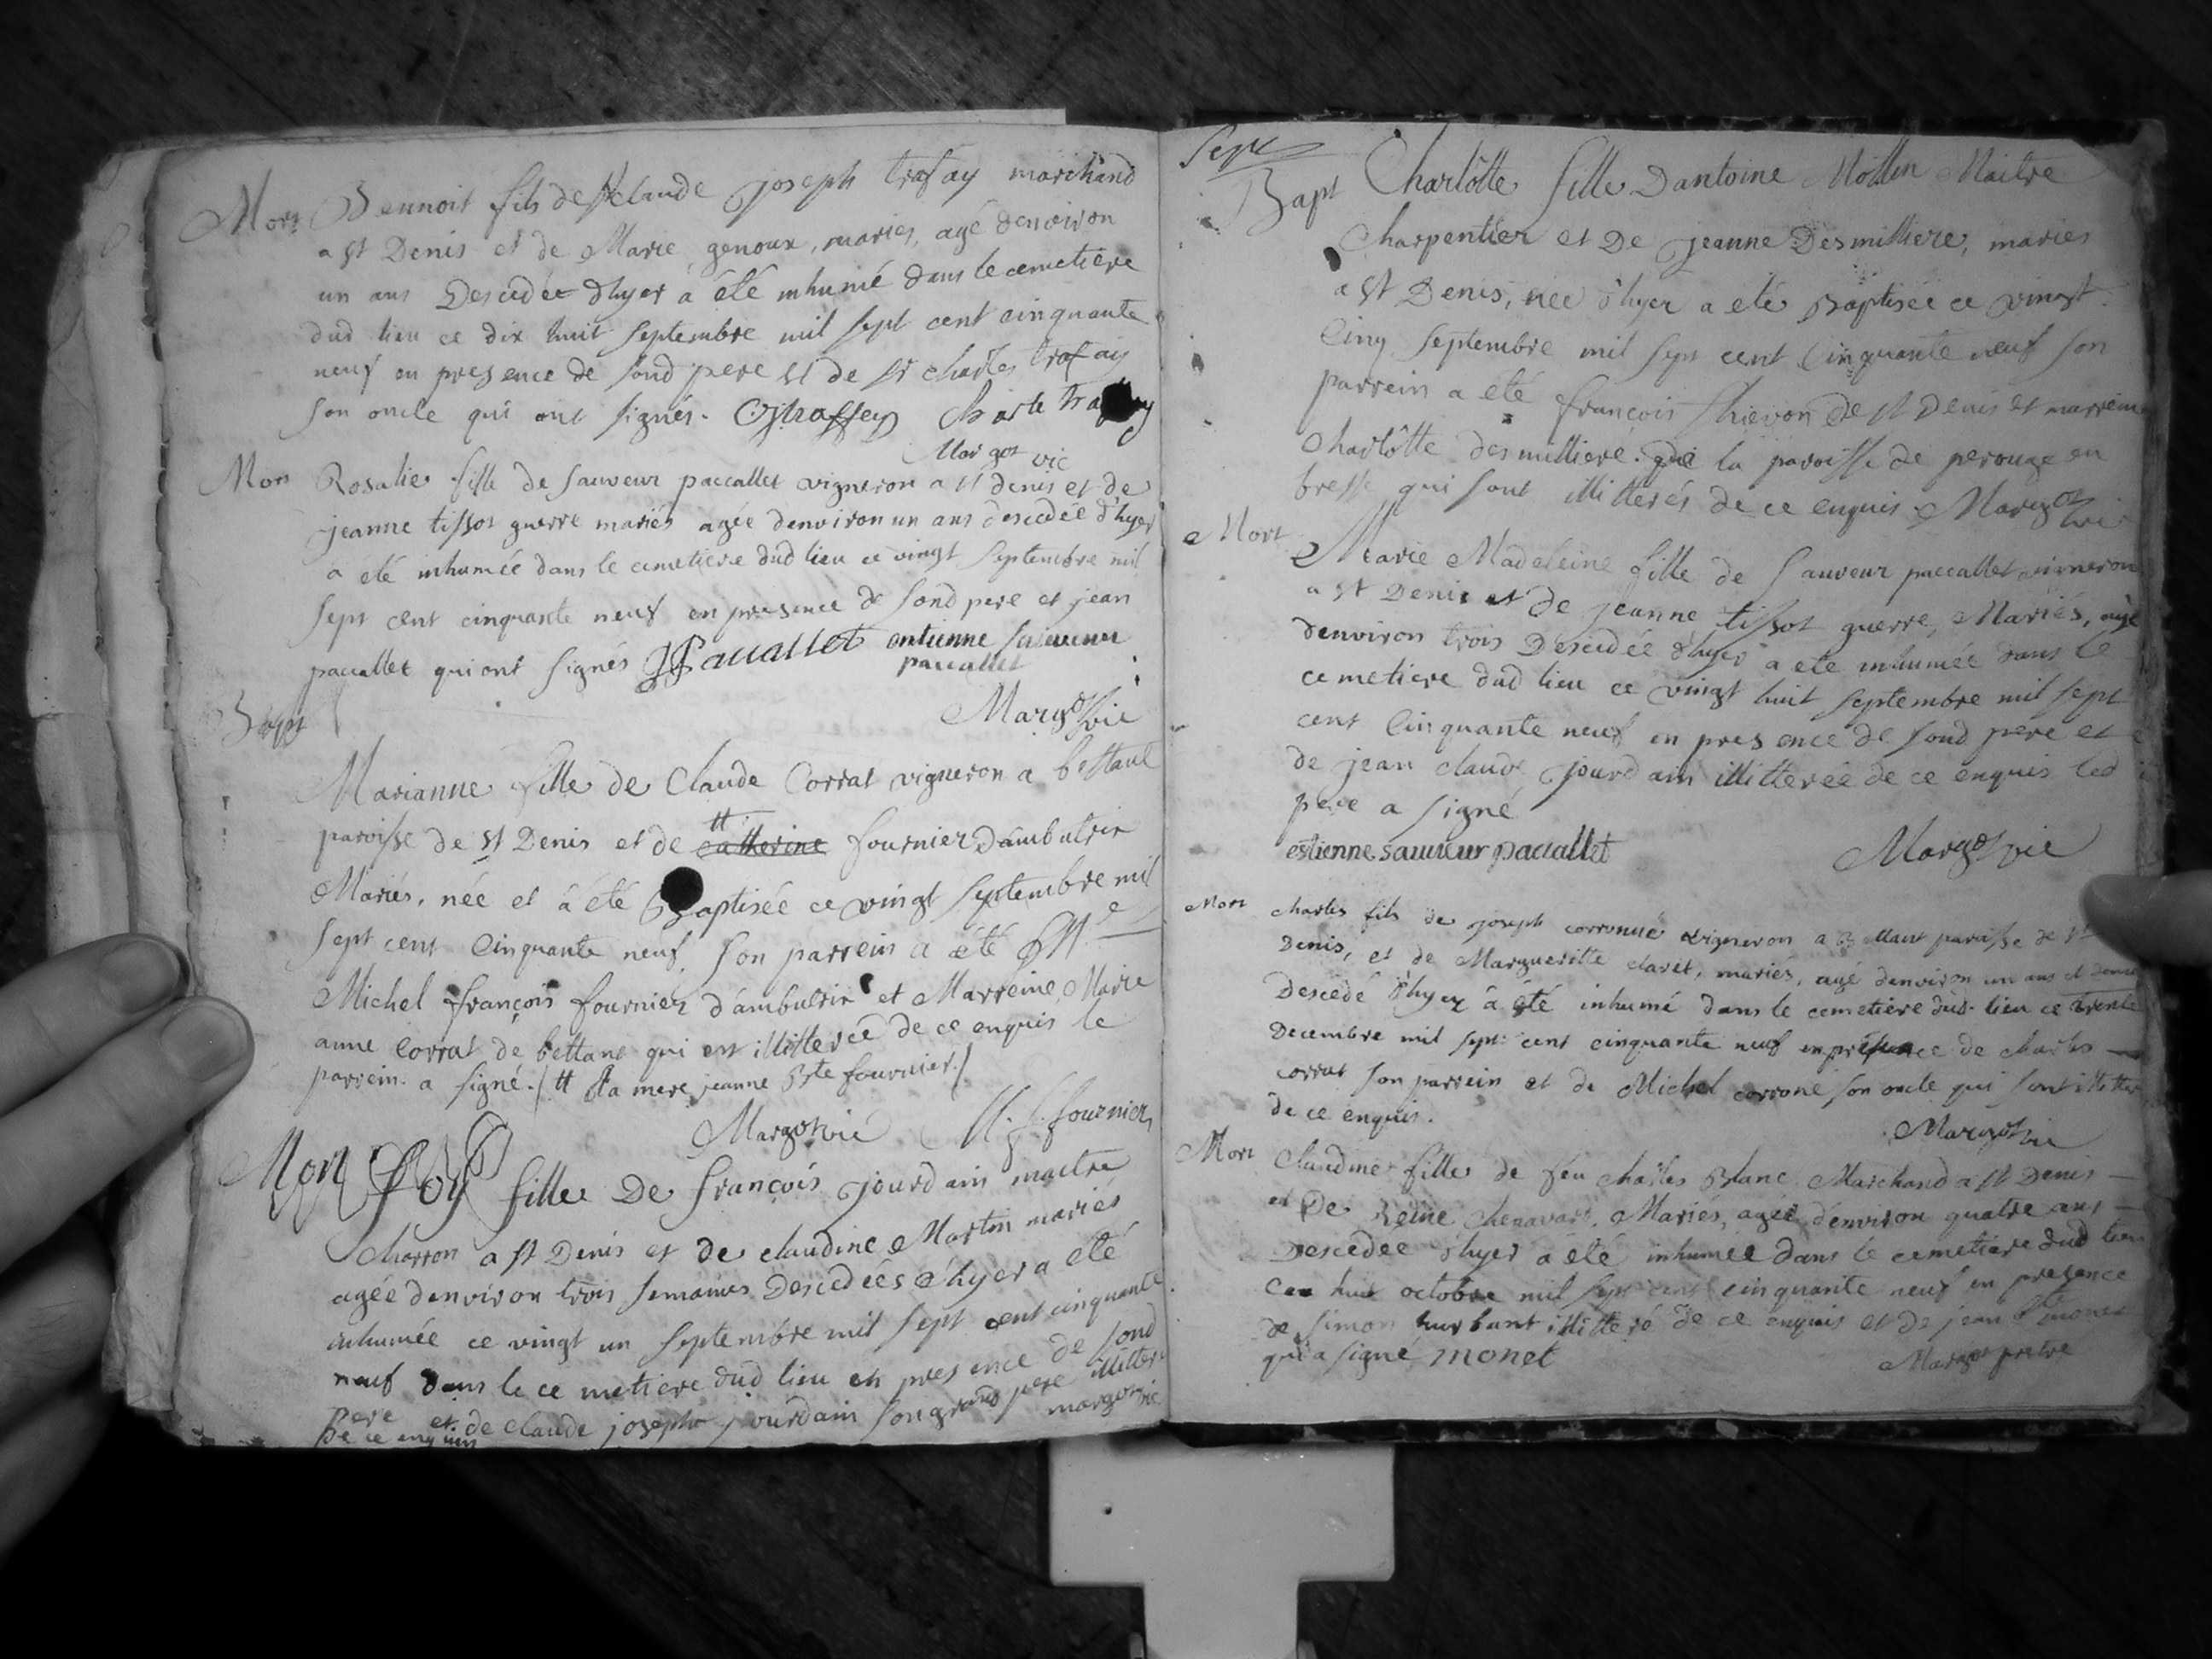 Mort Bennoit fils de Sr claude joseph trafay marchand
a st Denis et de Marie genoux, mariés, agé denviron
un ans Descedée d'hyer à été inhumé dans le cemetiere
dud lieu ce dix huit septembre mil sept cent cinquante
neuf en presence de sond pere et de sr charles trafay
son oncle qui ont signés. CJtraffey Charle
Margot vic
Mort Rosalie fille de sauveur paccallet vigneron a st denis et de
jeanne tissot guerre mariés agée denviron un ans descedée d'hyer
a été inhumée dans le cemetiere dud lieu ce vingt septembre mil
sept cent cinquante neuf en presence de sond pere et jean
paccallet qui ont signés JPacallet entienne sauveur
paccallet
Margot vic
Bapt
Marianne fille de Claude Corrat vigneron a bettant
paroisse de st Denis et de catterine tt fournier d'ambutrix
Mariés, née et à été Baptisée ce vingt septembre mil
sept cent Cinquante neuf son parrein a été
Michel françois fournier d'ambutrix et Marreine Marie
anne Corrat de bettant qui est illitterée de ce enquis le
parrein a signé. / tt sa mere jeanne Bte fournier /
Margot vic M. f. fournier
Mort foy fille De françois jourdain maitre
charron a st Denis et de claudine Martin mariés
agée denviron trois semaines Descedées d'hyer a été
inhumée ce vingt un septembre mil sept cent cinquante
neuf dans le cemetiere dud lieu en presence de sond
pere et de claude joseph jourdain son grand pere illitter
De ce enquis margot vic
Sept
Bapt Charlôtte fille Dantoine Mollin Maitre
Charpentier et De Jeanne Desmilliere, mariés
a st Denis, née d'hyer a eté Baptisée ce vingt
Cinq septembre mil sept cent Cinquante neuf son
parrein a été françois thievon de st Denis et marreine
Charlôtte desmilliere. de la paroisse de perouge en
bresse qui sont illitterés de ce enquis Margot vic
Mort
Marie Madeleine fille de sauveur paccallet vigneron
a st Denis et de jeanne tissot guerre, Mariés, agé
denviron trois Descedée d'hyer a eté inhumée dans le
cemetiere dud lieu ce vingt huit septembre mil sept
cent Cinquante neuf en presence de sond pere et
de jean claude jourdain illitterée de ce enquis led
pere a signé
estienne sauveur paccallet Margot vic
Mort charles fils de joseph corronné vigneron a Bettant paroisse de st
Denis, et de Margueritte claret, mariés, agé denviron un ans et demi
Descedé d'hyer à été inhumé dans le cemetiere dud. lieu ce trente
Decembre mil sept cent cinquante neuf en présence de charles
corrat son parrein et de Michel corroné son oncle qui sont illitter
de ce enquis.
Margot vic
Mort Claudine fille de feu charles Blanc Marchand a st Denis
et De Reine Chenavard, Mariés, agée d'environ quatre ans
Descedée d'hyer à été inhumée dans le cemetiere dud lieu
ce huit octobre mil sept cent cinquante neuf en presence
de simon illitteré de ce enquis et de jean Bte monet
qui a signé monet Margot pretre